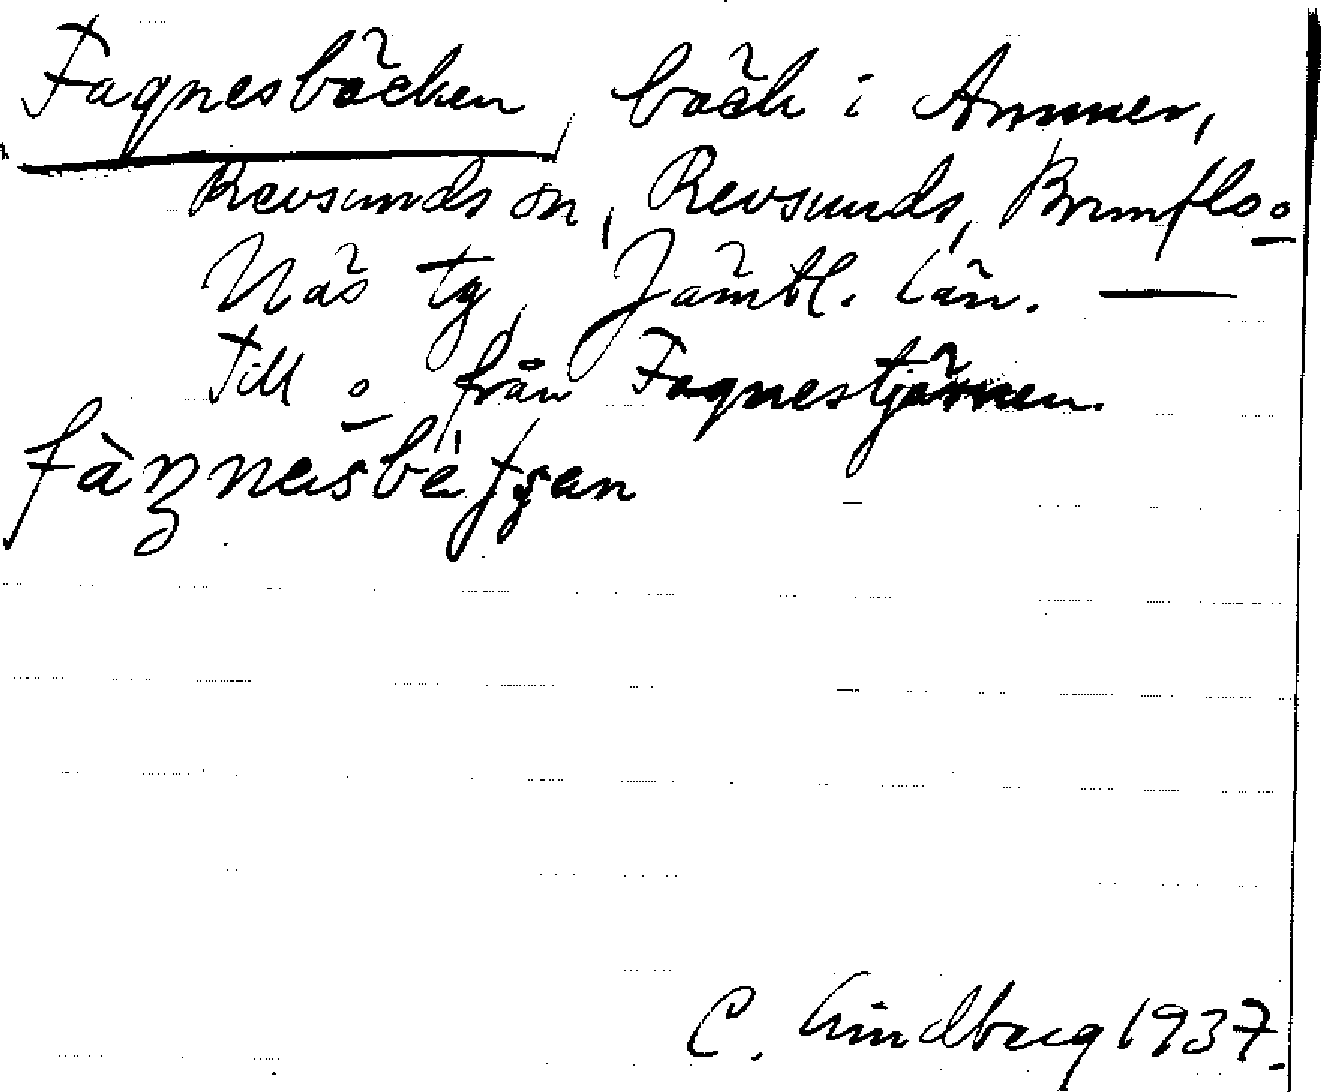 Fagnesbäcken, bäck i Ammer,
Revsunds sn, Revsunds, Brunflo o
Näs tg, Jämtl. län. —
Till o från Fagnestjärnen.
C. Lindberg 1937.